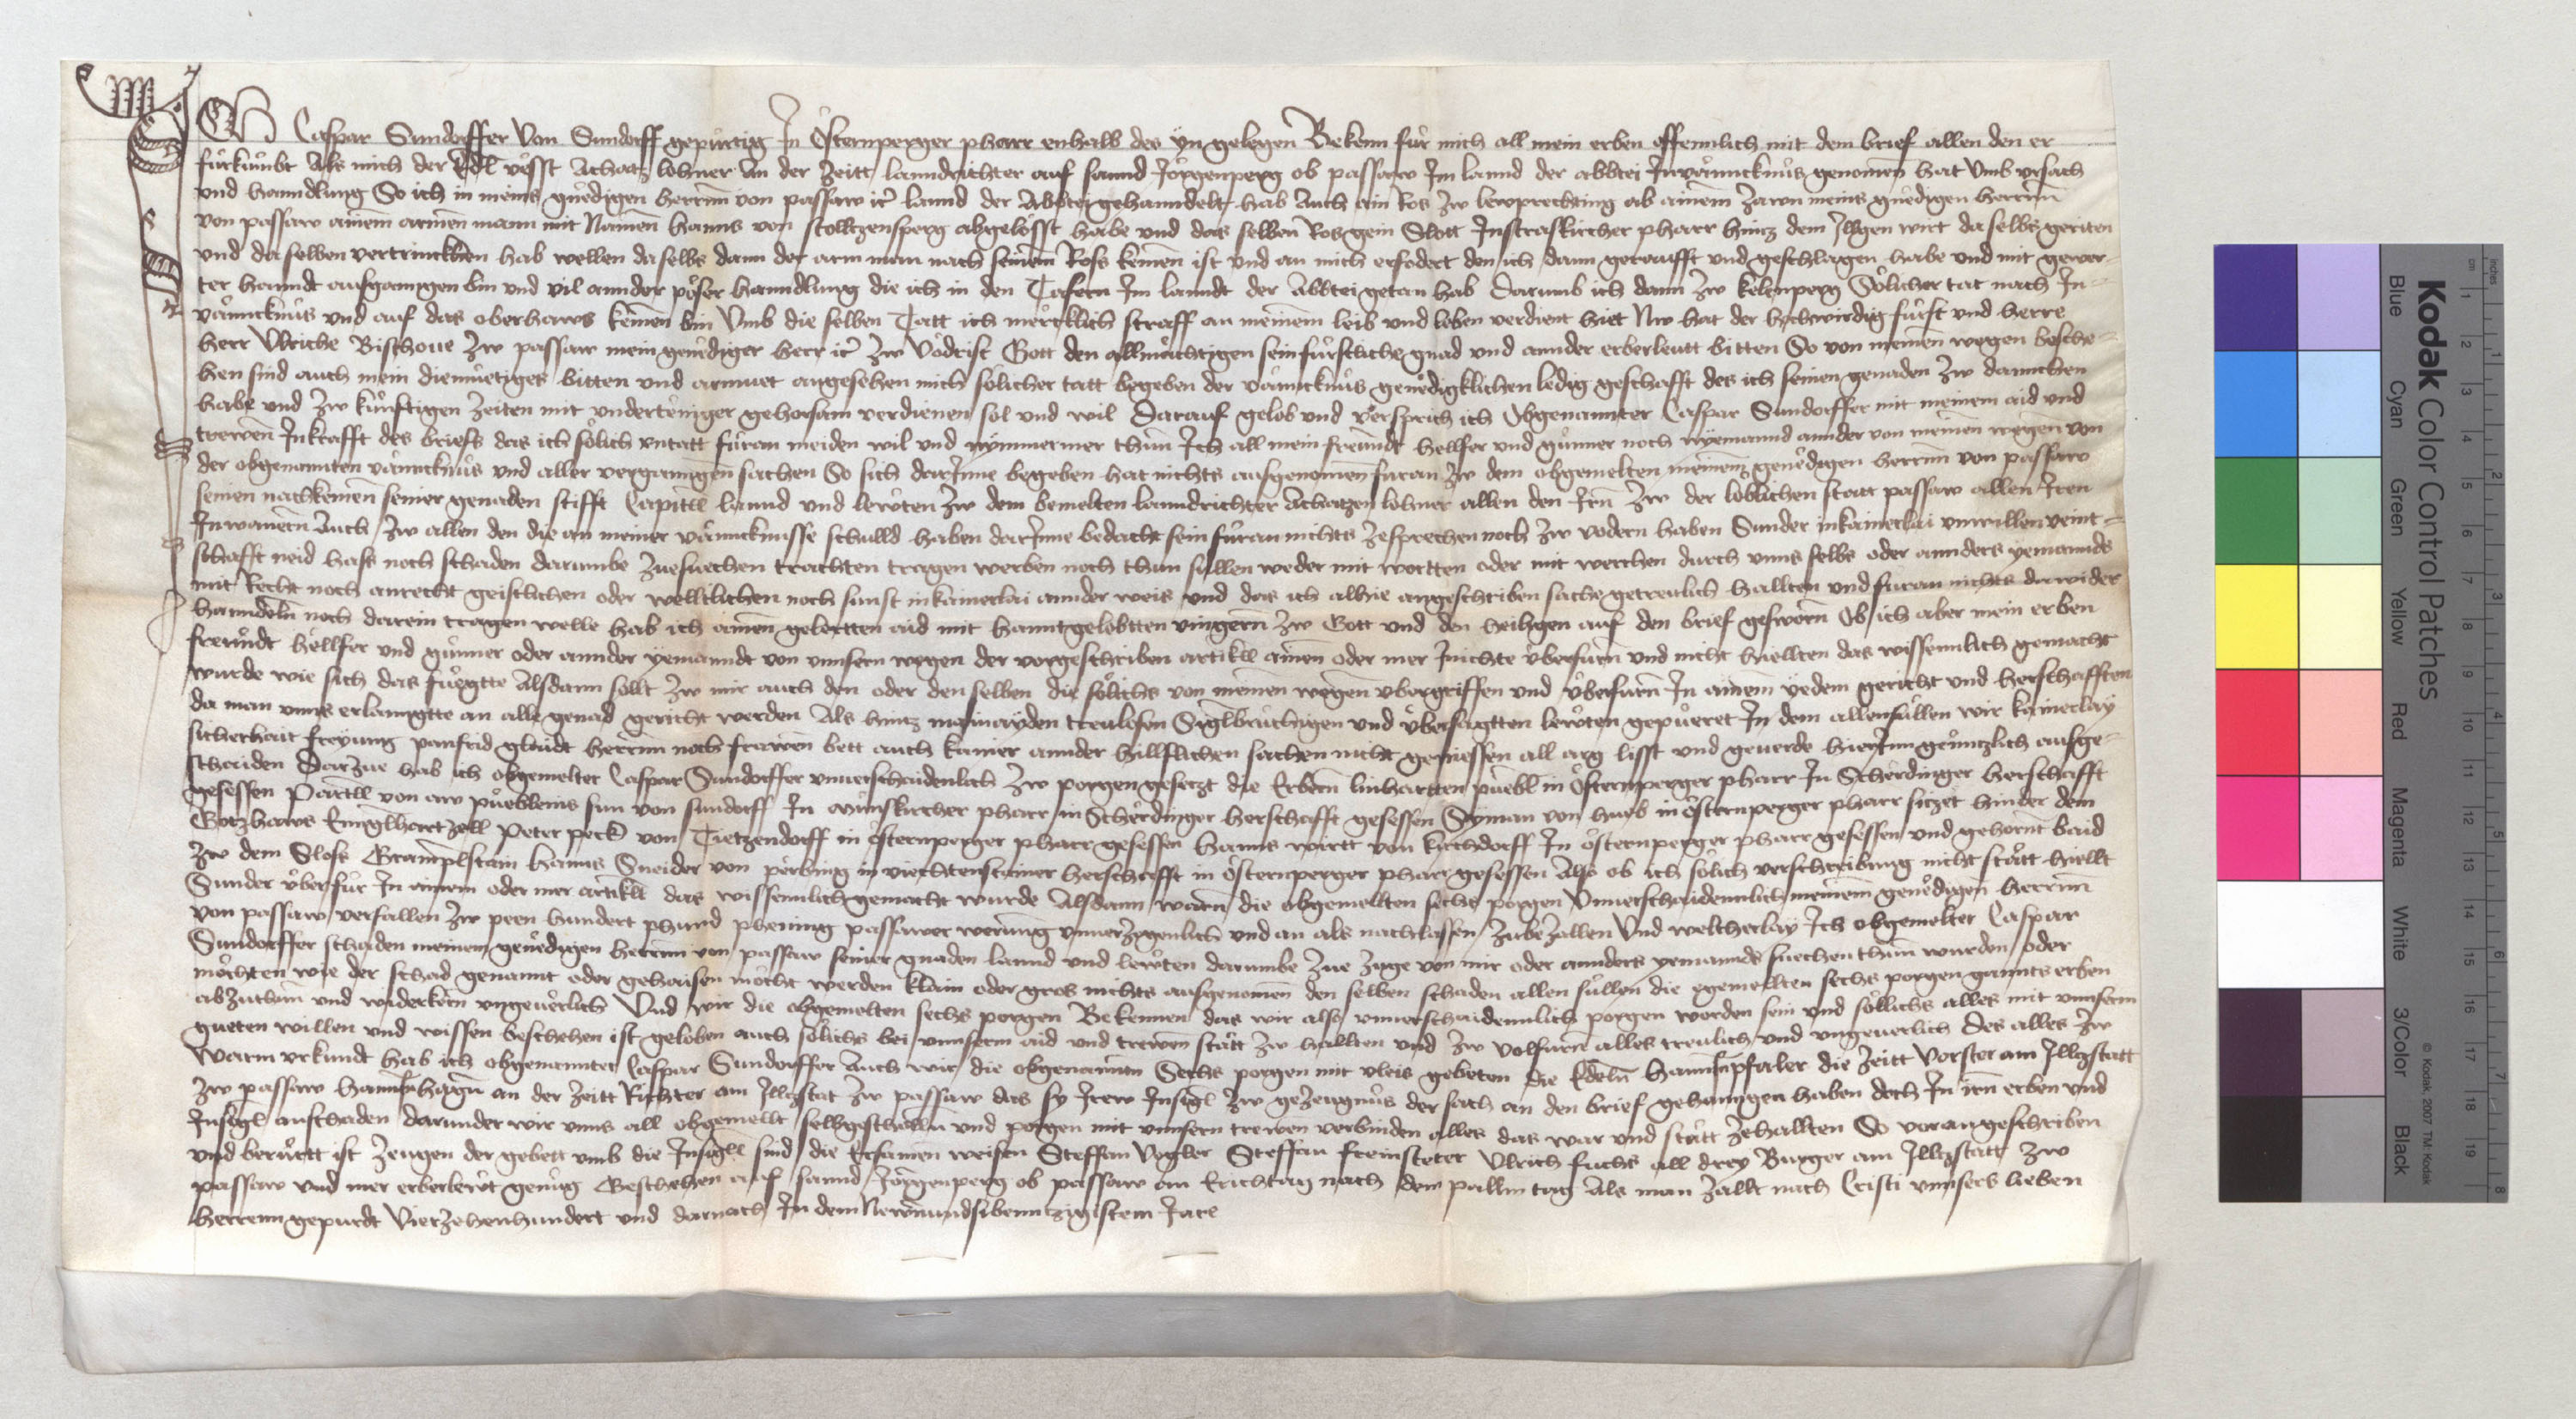 Ich Caspar Sundorffer Von Sundorff gepürtig In Östernperger pharr enhalb des Yn gelegen Bekenn für mich all mein erben offennlich mit dem brief allen den er
fürkumbt Als mich der Edl vesst Achatz lohner An der Zeitt lanndrichter auf sannd Jörgenperg ob passaw Im lannd der abbtei In vänncknüs genomen hat Vmb vrsach
und hanndlung So ich in meins gnedigen herrnn von passaw etc lannd der Abbtei gehanndelt hab Auch ain Ros zw lewprechting ab ainem Zawn meins gnedigen herrnn
von passaw ainem armen mann mit Namen hanns von stolltzensperg abgelösst habe und das selben Ros gein Slott In straskircher pharr hintz dem Illgen wirt daselbs geriten
und daselben vertrinckhen hab wellen daselbs dann der arm man nach seinem Ross kemen ist und an mich erfodert den ich dann gerauft und geschlagen habe und mit gewer-
ter hanndt ausgangen bin und vil annder pöser hanndlung die ich in den Tafern Im lanndt der Abbtei getan hab Darumb ich dann zw kelenperg Sölicher tat nach In
vänncknüs und auf das oberhaws kemen bin Vmb die selben Tatt ich mercklich straff an meinem leib und leben verdient hiet Nw hat der hochwirdig fürst und herre
herr Vlriche Bischoue zw passaw mein genediger herr etc zw Vodrist Gott den allmächtigen sein fürstliche gnad und annder erberleutt bitten So von meinen wegen besche-
hen sind auch mein diemüetiges bitten und armuet angesehen mich sölicher tatt begeben der vännckhnüs genedigklichen ledig geschafft des ich seinen genaden zw dannckhen
habe und zw künftigen zeiten mit underteniger gehorsam verdienen sol und wil Darauf gelob und versprich ich Obgenannter Caspar Sundorffer mit meinem aid und
trewen In krafft des briefs das ich sölich vntatt füran meiden wil und nymmermer thun Ich all mein freundt hellfer und gunner noch nyemannd annder von meinen wegen von
der obgenannten vännckhnüs und aller verganngen sachen So sich darInne begeben hat nichts ausgenomen furan zw dem obgemelten meinem genedigen herrnn von passaw
seinen nachkemen seiner genaden stifft Capittl lannd und lewten zw dem bemelten lanndrichter Achatzen lohner allen den Irn zw der löblichen statt passaw allen Iren
Inwonern Auch zw allen den die an meiner vännckhnusse schulld haben darInne bedacht sein füran nichts zesprechen noch zw vodern haben Sunder in kainerlai unwillen veint-
schafft neid hass noch schaden darumbe zuesuechen trachten tragen werben noch thun süllen weder mit wortten oder mit werchen durch unns selbs oder annders yemannds
mit Recht noch anrecht geistlichen oder welltlichen noch sunst in kainerlai annder weis und das ich allhie angeschriben sache getreulich hallten und furan nichts dawider
hanndeln noch darein tragen welle hab ich ainen gelertten aid mit hanntgelobtten vingern zw Gott und den heiligen auf den brief gesworn Ob ich aber mein erben
freundt hellfer und gunner oder annder yemanndt von unnsern wegen der vorgeschriben artikll ainen oder mer Inichte überfürn und nicht hiellten das wissennlich gemacht
wurde wie sich das fuegtte Alsdann sollt zw mir auch den oder den selben die söllichs von meinen wegen übergriffen und überfürn In ainem yedem gericht und herschafften
da man unns erlanngtte an alle genad gericht werden Als hintz mainayden treulosen Siglbrüchigen und übersagtten lewten gepüeret In dem allen süllen wir kainerlay
sicherhait freyung panfrid glaidt herrnn noch frawen bett auch kainer annder hillflichen sachen nicht geniessen all arg lisst und geuerde hierInn genntzlich ausge-
schaiden Darzue hab ich obgemelter Caspar Sundorffer unuerschaidenlich zw porgen gesetzt die Erbern linhartten püebl in Österperger pharr In Scherdinger herschafft
gesessen Pärtll von aw püebleins sun von sundorff In münskircher pharr in Scherdinger herschafft gesessen Syman von hueb in Österperger pharr sitzet hinder dem
Gotzhaws Ennglhartzell Peter peck von Tietzendorff in Österperger pharr gesessen hanns wirtt von kirchdorff In österperger pharr gesessen und gehornt baid
zw dem Sloss Grampelstain hanns Sneider von perbing in viechtenstainer herschafft in Österperger pharr gesessen Also ob ich sölich verschreibung nicht stätt hiellt
Sunder überfür In ainem oder mer artikll das wissennlich gemacht wurde Alsdann wärn die obgemellten sechs porgen Unuerschaidennlich meinem genedigen herrnn
von passaw verfallen zw peen hundert phund phening passawer werung unuerzigenlich und an als nachlassen zubezallen Und welcherlay Ich obgemelter Caspar
Sundorffer schaden meinem genedigen herrnn von passaw seiner gnaden lannd und lewten darumbe zue züge von mir oder annders yemannds suechen thun wurden oder
möchten wie der schad genannt oder gehaissen möcht werden klain oder gros nichts ausgenomen den selben schaden allen süllen die egemellten sechs porgen gannts erben
abzuthun und widerkern ungeuerlich Und wir die obgemelten sechs porgen Bekennen das wir also unuerschaidennlich porgen worden sein und söllichs alles mit unnserm
gueten willen und wissen beschehen ist geloben auch sölichs bei unnserm aid und trewen stätt zw hallten und zw volfürn alles treulich und ungeuerlich Des alles zw
Warm vrkundt hab ich obgenannter Caspar Sundorffer Auch wir die obgenannten Sechs porgen mit vleis gebeten die Edeln hannsen pfaler die zeitt Vorster am Illzstatt
zw passaw hannsen hagn an der zeitt Richter am Illzstat zw passaw das sy Irew Insigl zw gezeugnüs der sach an den brief gehanngen haben doch In irn erben und
Insigl anschaden darunder wir unns all obgemellt selbgescholln und porgen mit unnsern trewen verbinden alles das war und stätt zehallten So vorangeschriben
und berürtt ist Zeugen der gebett umb die Insigll sind die Ersamen weisen Steffan Vogler Steffan freinsteter Ulrich fuchs all drey Burger am Illzstatt zw
passaw und mer erberlewt genüg Geschehen auf sannd Jörgenperg ob passaw am Erichtag nach dem pallm tag Als man zallt nach Cristi unnsers lieben
herrenn gepurdt Vierzehenhundert und darnach In dem Newnundsibenntzigistem Jare
Kodak Color Control Patches
Blue Cyan Green Yellow Red Magenta White 3/Color Black
© Kodak, 2007 TM: Kodak
cm 1 2 3 4 5 6 7 8 9 10 11 12 13 14 15 16 17 18 19
inches 1 2 3 4 5 6 7 8